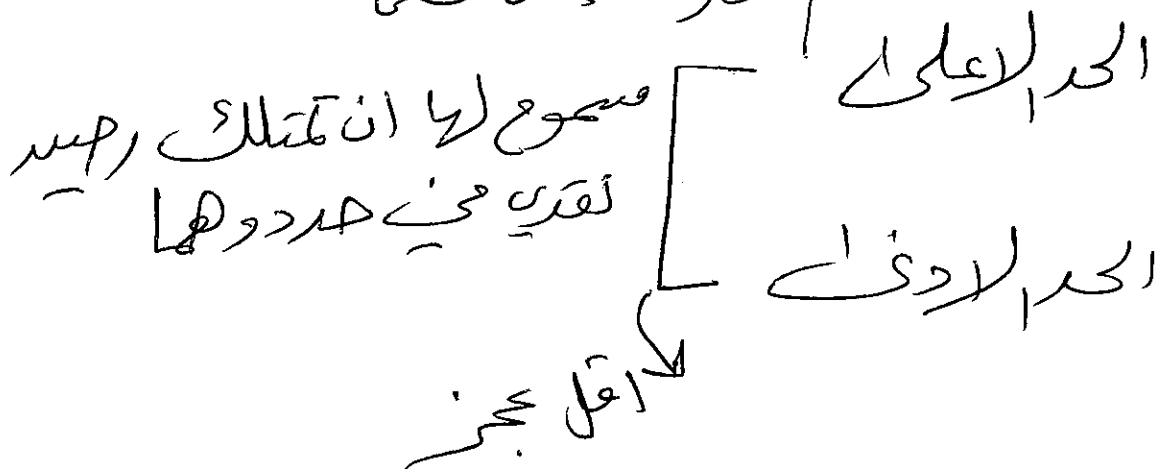 الحد الاعلى
مسموح لها ان تمتلك رصيد
نقدي في حدودهما
الحد الادنى
اقل عجز